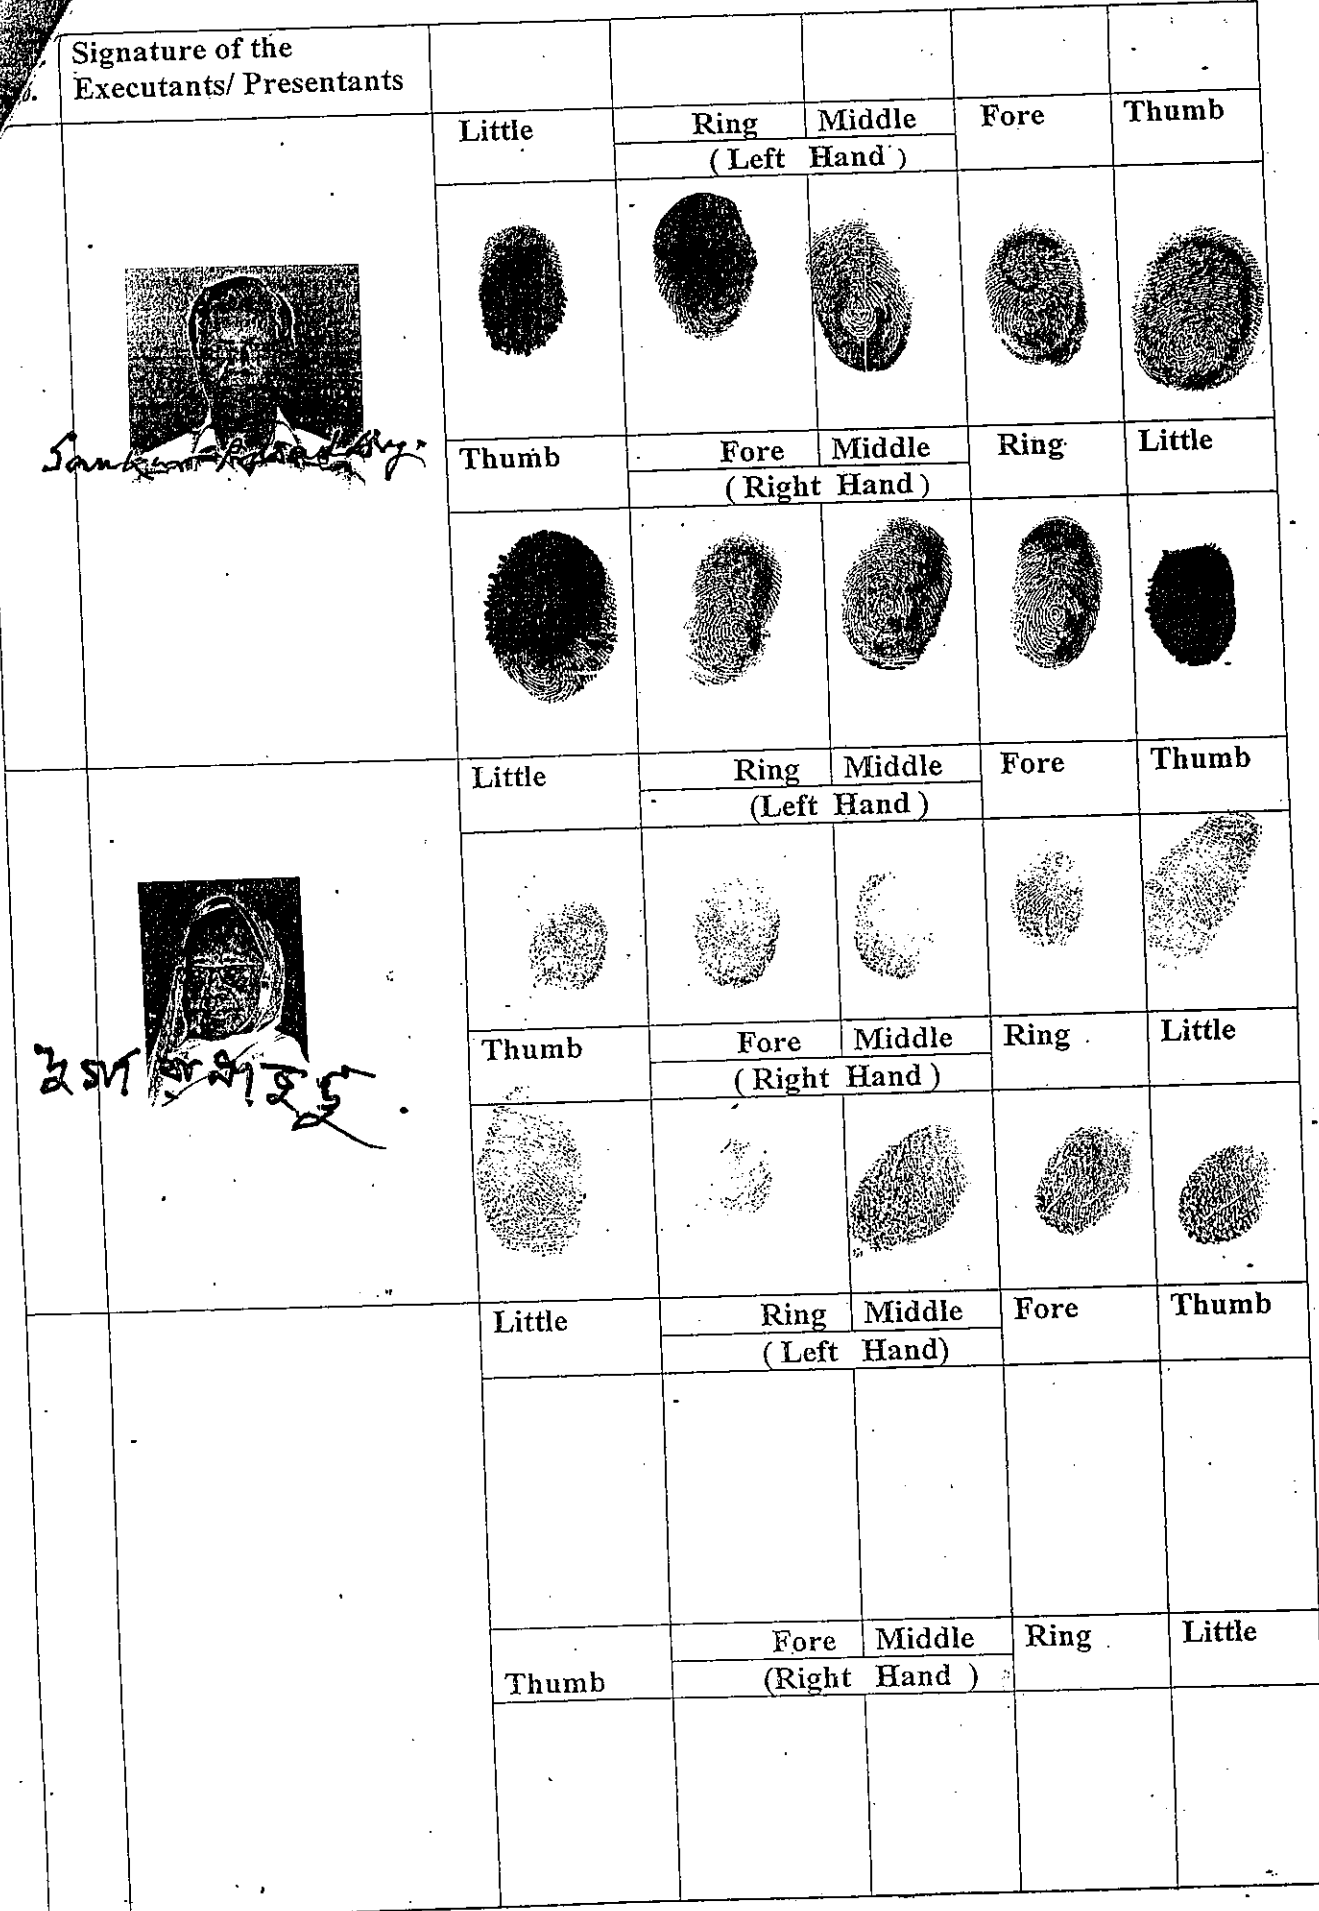 Signature of the
Executants/ Presentants
Little Ring Middle Fore Thumb
( Left Hand )
Thumb Fore Middle Ring Little
( Right Hand )
Little Ring Middle Fore Thumb
(Left Hand )
Thumb Fore Middle Ring Little
( Right Hand )
Little Ring Middle Fore Thumb
( Left Hand)
Thumb Fore Middle Ring Little
(Right Hand )